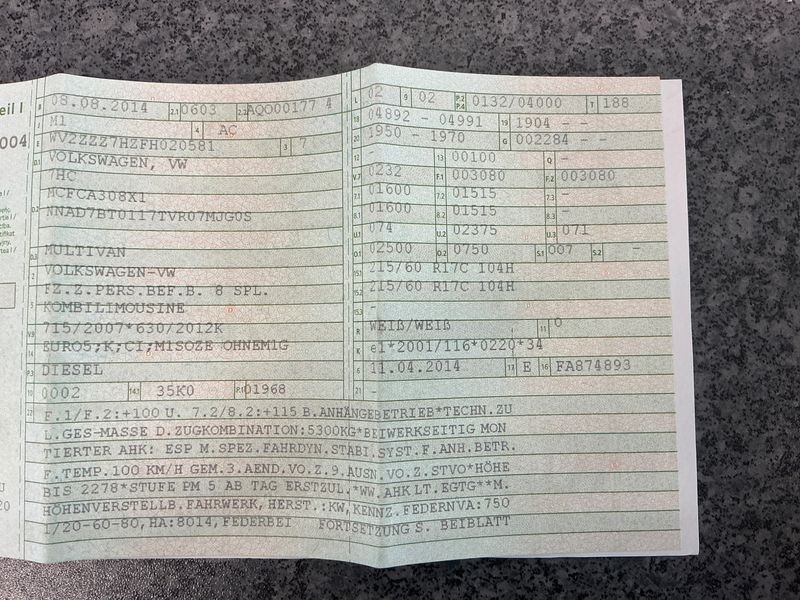 eil I
004
B 08.08.2014 2.1 0603 2.2 AQO00177 4
J M1 4 AC
E WV2ZZZ7HZFH020581 3 7
D.1 VOLKSWAGEN, VW
7HC
MCFCA308X1
D.2 NNAD7BT0117TVR07MJG0S
D.3 MULTIVAN
2 VOLKSWAGEN-VW
FZ.Z.PERS.BEF.B. 8 SPL.
5 KOMBILIMOUSINE
V.9 715/2007*630/2012K
14 EURO5;K;CI;M1SOZE OHNEM1G
P.3 DIESEL
10 0002 14.1 35K0 P.1 01968
L 02 9 02 P.2 P.4 0132/04000 T 188
18 04892 - 04991 19 1904 - -
20 1950 - 1970 G 002284 - -
12 - 13 00100 Q -
V.7 0232 F.1 003080 F.2 003080
7.1 01600 7.2 01515 7.3 -
8.1 01600 8.2 01515 8.3 -
U.1 074 U.2 02375 U.3 071
O.1 02500 O.2 0750 S.1 007 S.2 -
15.1 215/60 R17C 104H
15.2 215/60 R17C 104H
15.3 -
R WEIß/WEIß 11 0
K e1*2001/116*0220*34
6 11.04.2014 17 E 16 FA874893
21 -
22 F.1/F.2:+100 U. 7.2/8.2:+115 B.ANHÄNGEBETRIEB*TECHN.ZU
L.GES-MASSE D.ZUGKOMBINATION:5300KG*BEIWERKSEITIG MON
TIERTER AHK: ESP M.SPEZ.FAHRDYN.STABI.SYST.F.ANH.BETR.
F.TEMP.100 KM/H GEM.3.AEND.VO.Z.9.AUSN.VO.Z.STVO*HÖHE
BIS 2278*STUFE PM 5 AB TAG ERSTZUL.*WW.AHK LT.EGTG**M.
HÖHENVERSTELLB.FAHRWERK,HERST.:KW,KENNZ.FEDERNVA:750
1/20-60-80,HA:8014,FEDERBEI FORTSETZUNG S. BEIBLATT